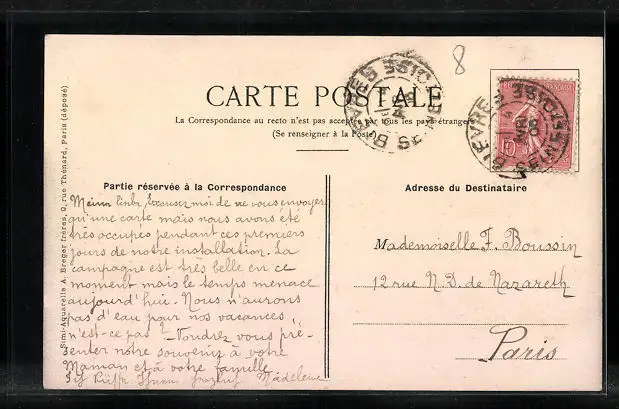 8
CARTE POSTALE
La Correspondance au recto n'est pas acceptée par tous les pays étrangers
(Se renseigner à la Poste)
BIÈVRES SEINE ET OISE
BIÈVRES SEINE ET OISE
10
Partie réservée à la Correspondance
Excusez moi de ne vous envoyer
qu'une carte mais nous avons été
très occupés pendant ces premiers
jours de notre installation. La
campagne est très belle en ce
moment mais le temps menace
aujourd'hui. Nous n'aurons
pas d'eau pour nos vacances
n'est-ce pas ? Voudrez vous pré-
senter notre souvenir à votre
Maman et à votre famille
Madeleine
Adresse du Destinataire
Mademoiselle F. Boussin
12 rue N. D. de Nazareth
Paris
Simi-Aquarelle A. Breger frères, 9, rue Thénard, Paris (déposé)